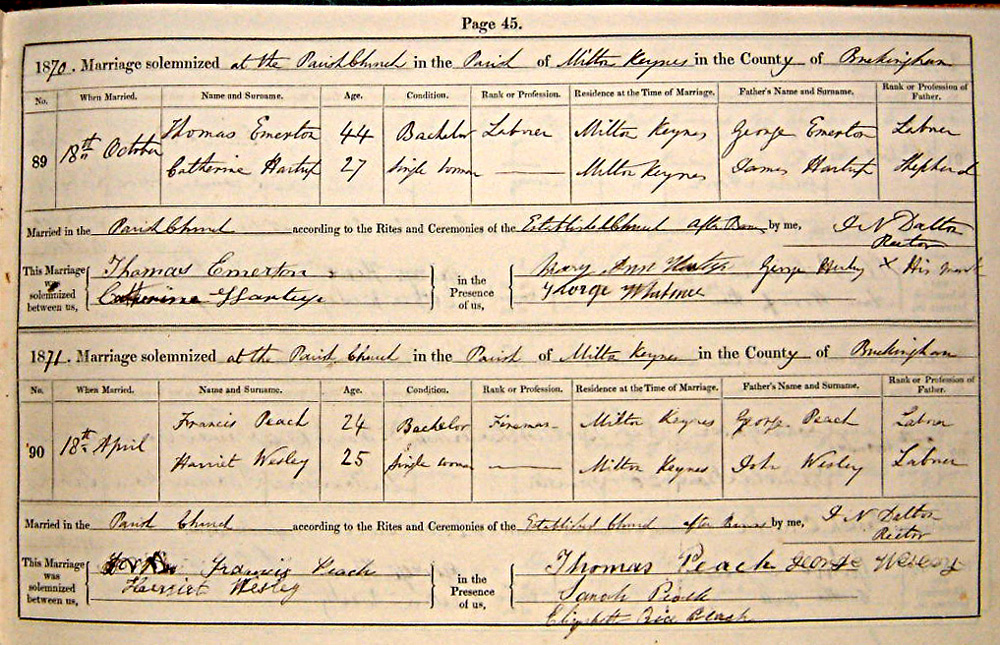 Page 45.
1870. Marriage solemnized at the Parish Church in the Parish of Milton Keynes in the County of Buckingham
No. When Married. Name and Surname. Age. Condition. Rank or Profession. Residence at the Time of Marriage. Father's Name and Surname. Rank or Profession of Father.
89 18th October Thomas Emerton 44 Bachelor Labourer Milton Keynes George Emerton Labourer
Catherine Hartup 27 Single woman Milton Keynes James Hartup Shepherd
Married in the Parish Church according to the Rites and Ceremonies of the Established Church after Banns by me, J N Dalton
Rector
This Marriage was solemnized between us, Thomas Emerton in the Presence of us, Mary Ann George X His mark
Catherine George Whitmee
1871. Marriage solemnized at the Parish Church in the Parish of Milton Keynes in the County of Buckingham
No. When Married. Name and Surname. Age. Condition. Rank or Profession. Residence at the Time of Marriage. Father's Name and Surname. Rank or Profession of Father.
90 18th April Francis Peach 24 Bachelor Fireman Milton Keynes George Peach Labourer
Harriet Wesley 25 Single woman Milton Keynes John Wesley Labourer
Married in the Parish Church according to the Rites and Ceremonies of the Established Church after Banns by me, J N Dalton
Rector
This Marriage was solemnized between us, Francis Peach in the Presence of us, Thomas Peach George Wesley
Harriet Wesley Sarah Peach
Elizabeth Rice